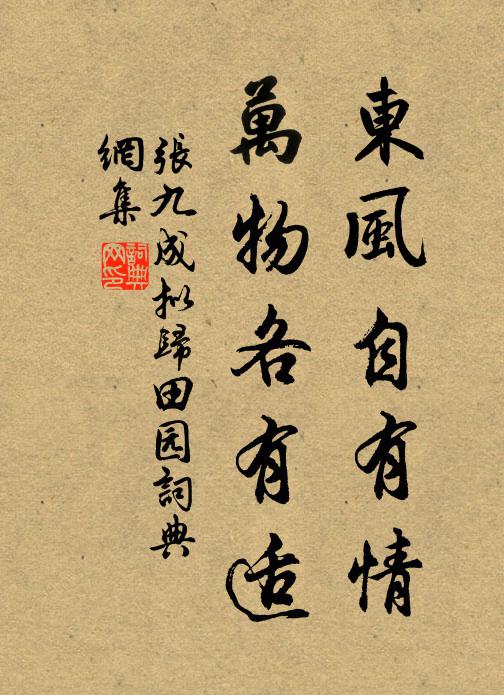 東風自有情
萬物各有适
張九成拟歸田园詞典
網集
詞典网印